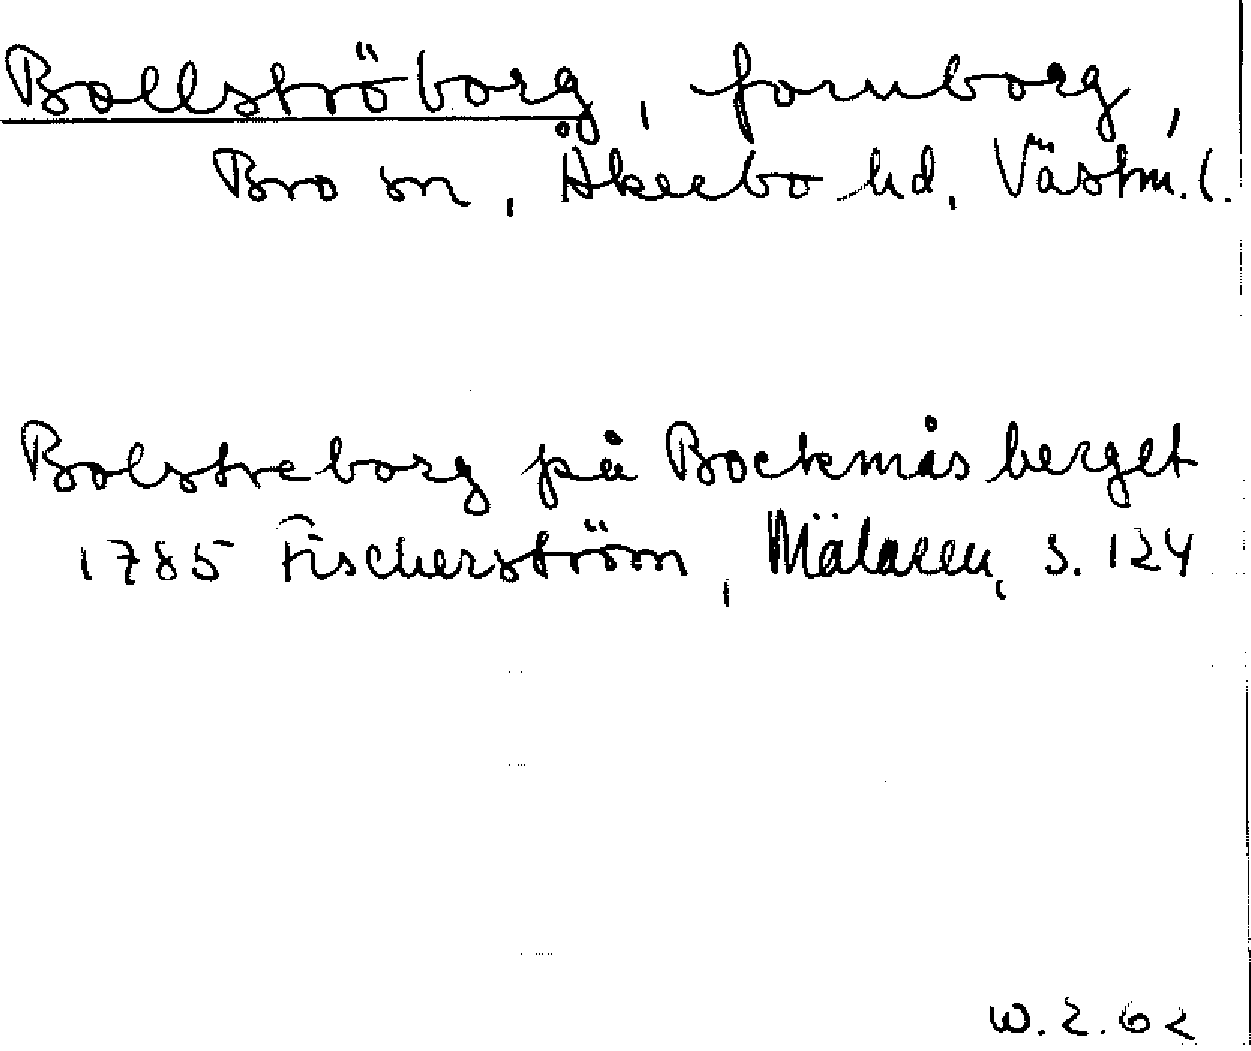 Bollströborg, fornborg,
Bro sn, Åkerbo hd, Västm. l.
Bolstreborg på Bockmåsberget
1785 Fischerström, Mälaren, s. 124
W. Z. 62